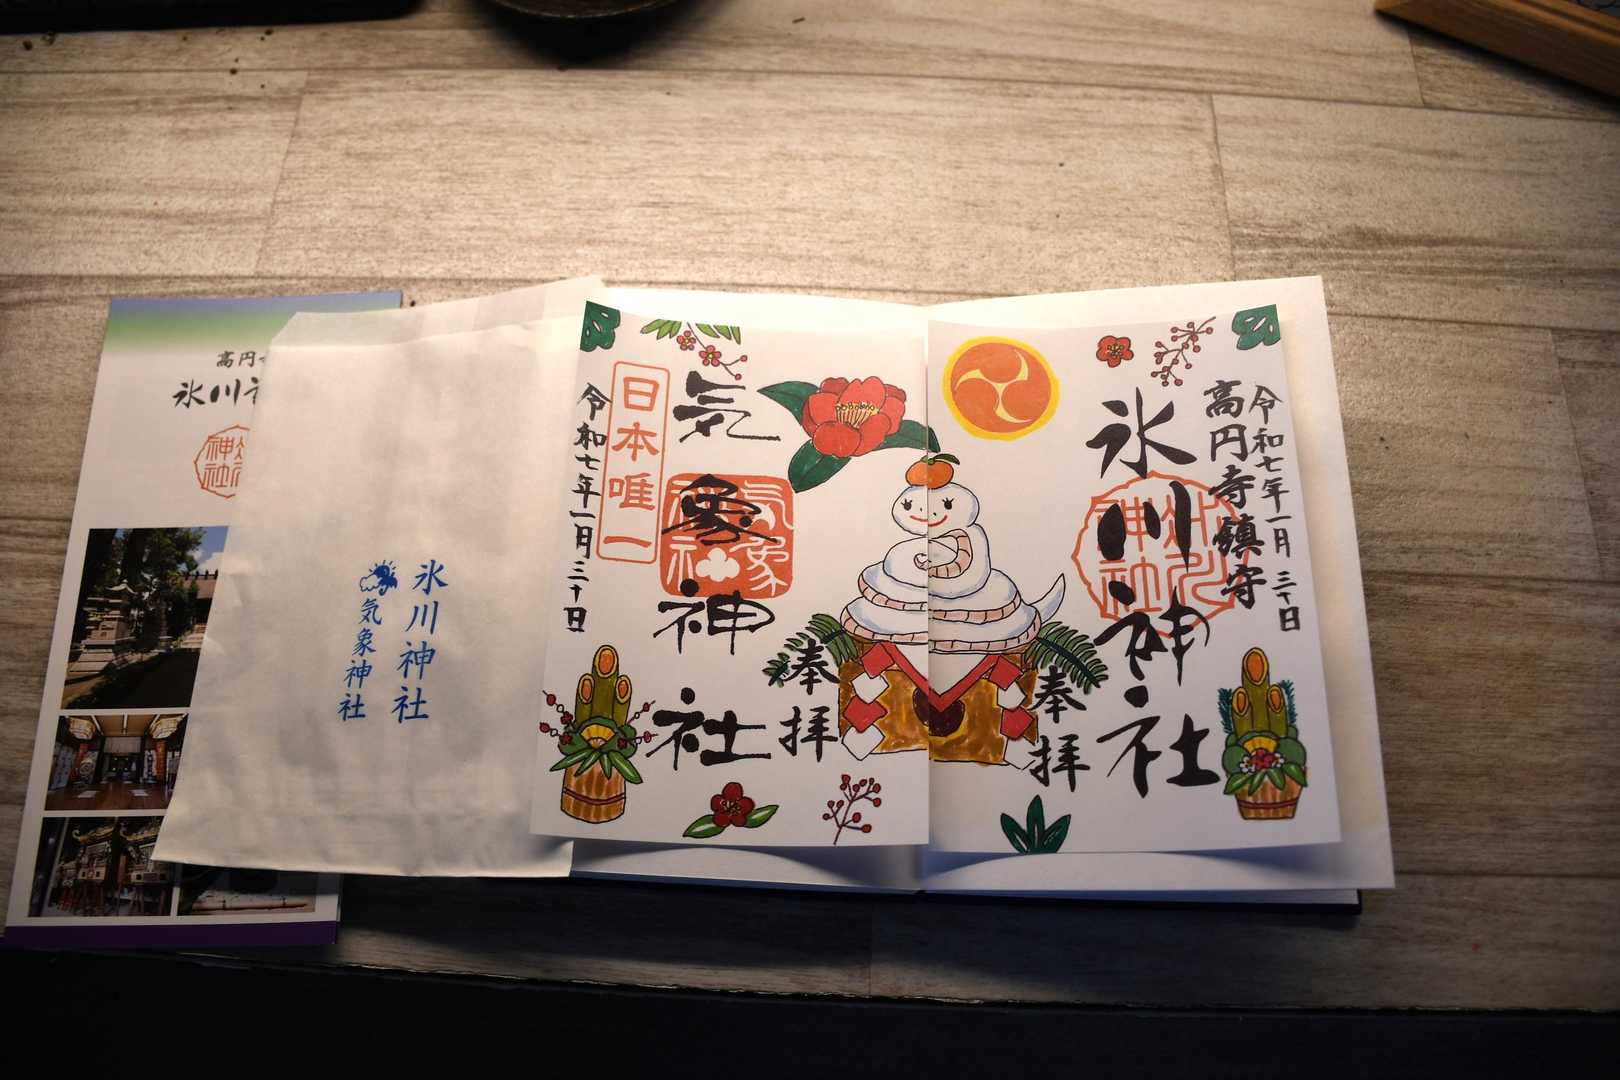 高円
氷川
氷川神社
気象神社
高円寺鎮守
令和七年一月三十日
氷川神社
奉拝
気象神社
奉拝
日本唯一
令和七年一月三十日